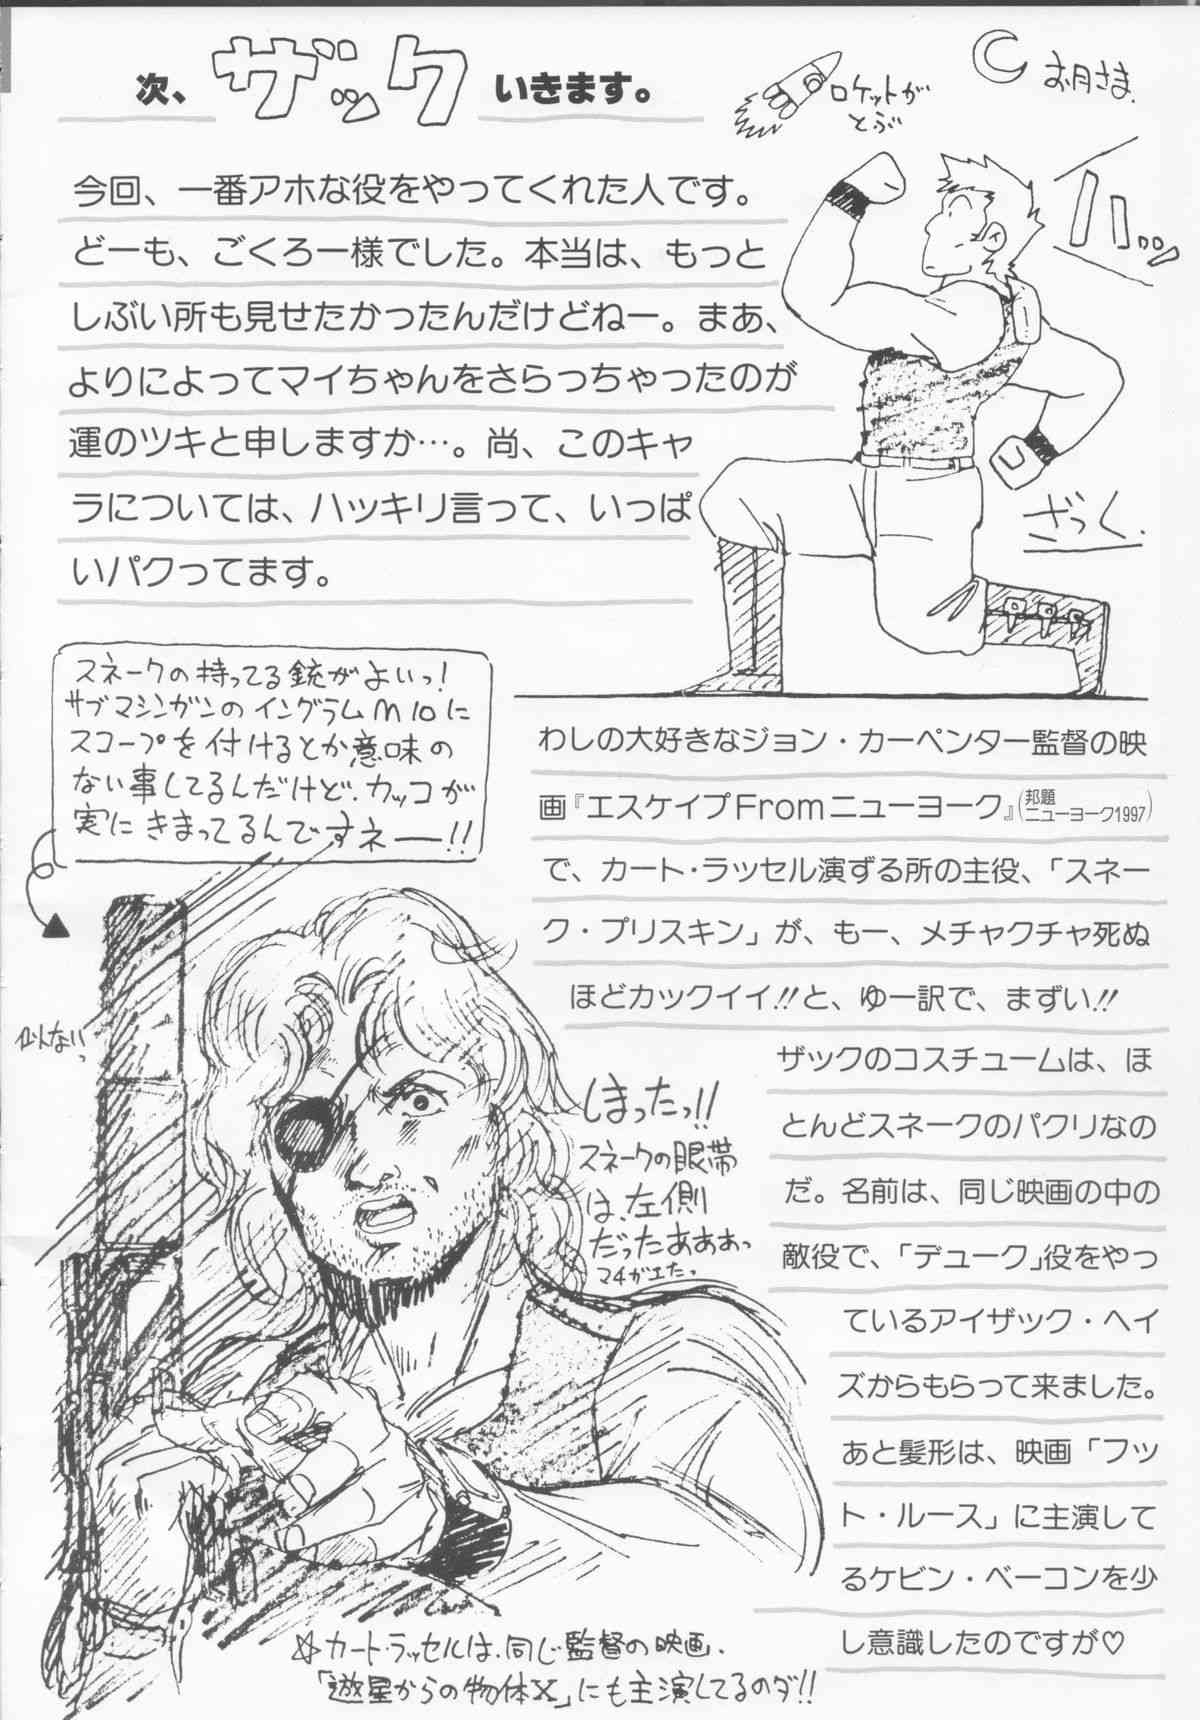 次、ザックいきます。
ロケットが
とぶ
お月さま
バッ
今回、一番アホな役をやってくれた人です。
どーも、ごくろー様でした。本当は、もっと
しぶい所も見せたかったんだけどねー。まあ、
よりによってマイちゃんをさらっちゃったのが
運のツキと申しますか…。尚、このキャ
ラについては、ハッキリ言って、いっぱ
いパクってます。
ざっく.
スネークの持ってる銃がよいっ!
サブマシンガンのイングラムM10に
スコープを付けるとか意味の
ない事してるんだけど、カッコが
実にきまってるんですネー!!
わしの大好きなジョン・カーペンター監督の映
画『エスケイプFromニューヨーク』(邦題 ニューヨーク1997)
で、カート・ラッセル演ずる所の主役、「スネー
ク・プリスキン」が、もー、メチャクチャ死ぬ
ほどカックイイ!!と、ゆー訳で、まずい!!
ザックのコスチュームは、ほ
とんどスネークのパクリなの
だ。名前は、同じ映画の中の
敵役で、「デューク」役をやっ
ているアイザック・ヘイ
ズからもらって来ました。
あと髪形は、映画「フッ
ト・ルース」に主演して
るケビン・ベーコンを少
し意識したのですが♡
似ないっ
しまったっ!!
スネークの眼帯
は、左側
だったあああっ
マチがエたっ
☆カート・ラッセルは、同じ監督の映画、
「遊星からの物体X」にも主演してるのダ!!